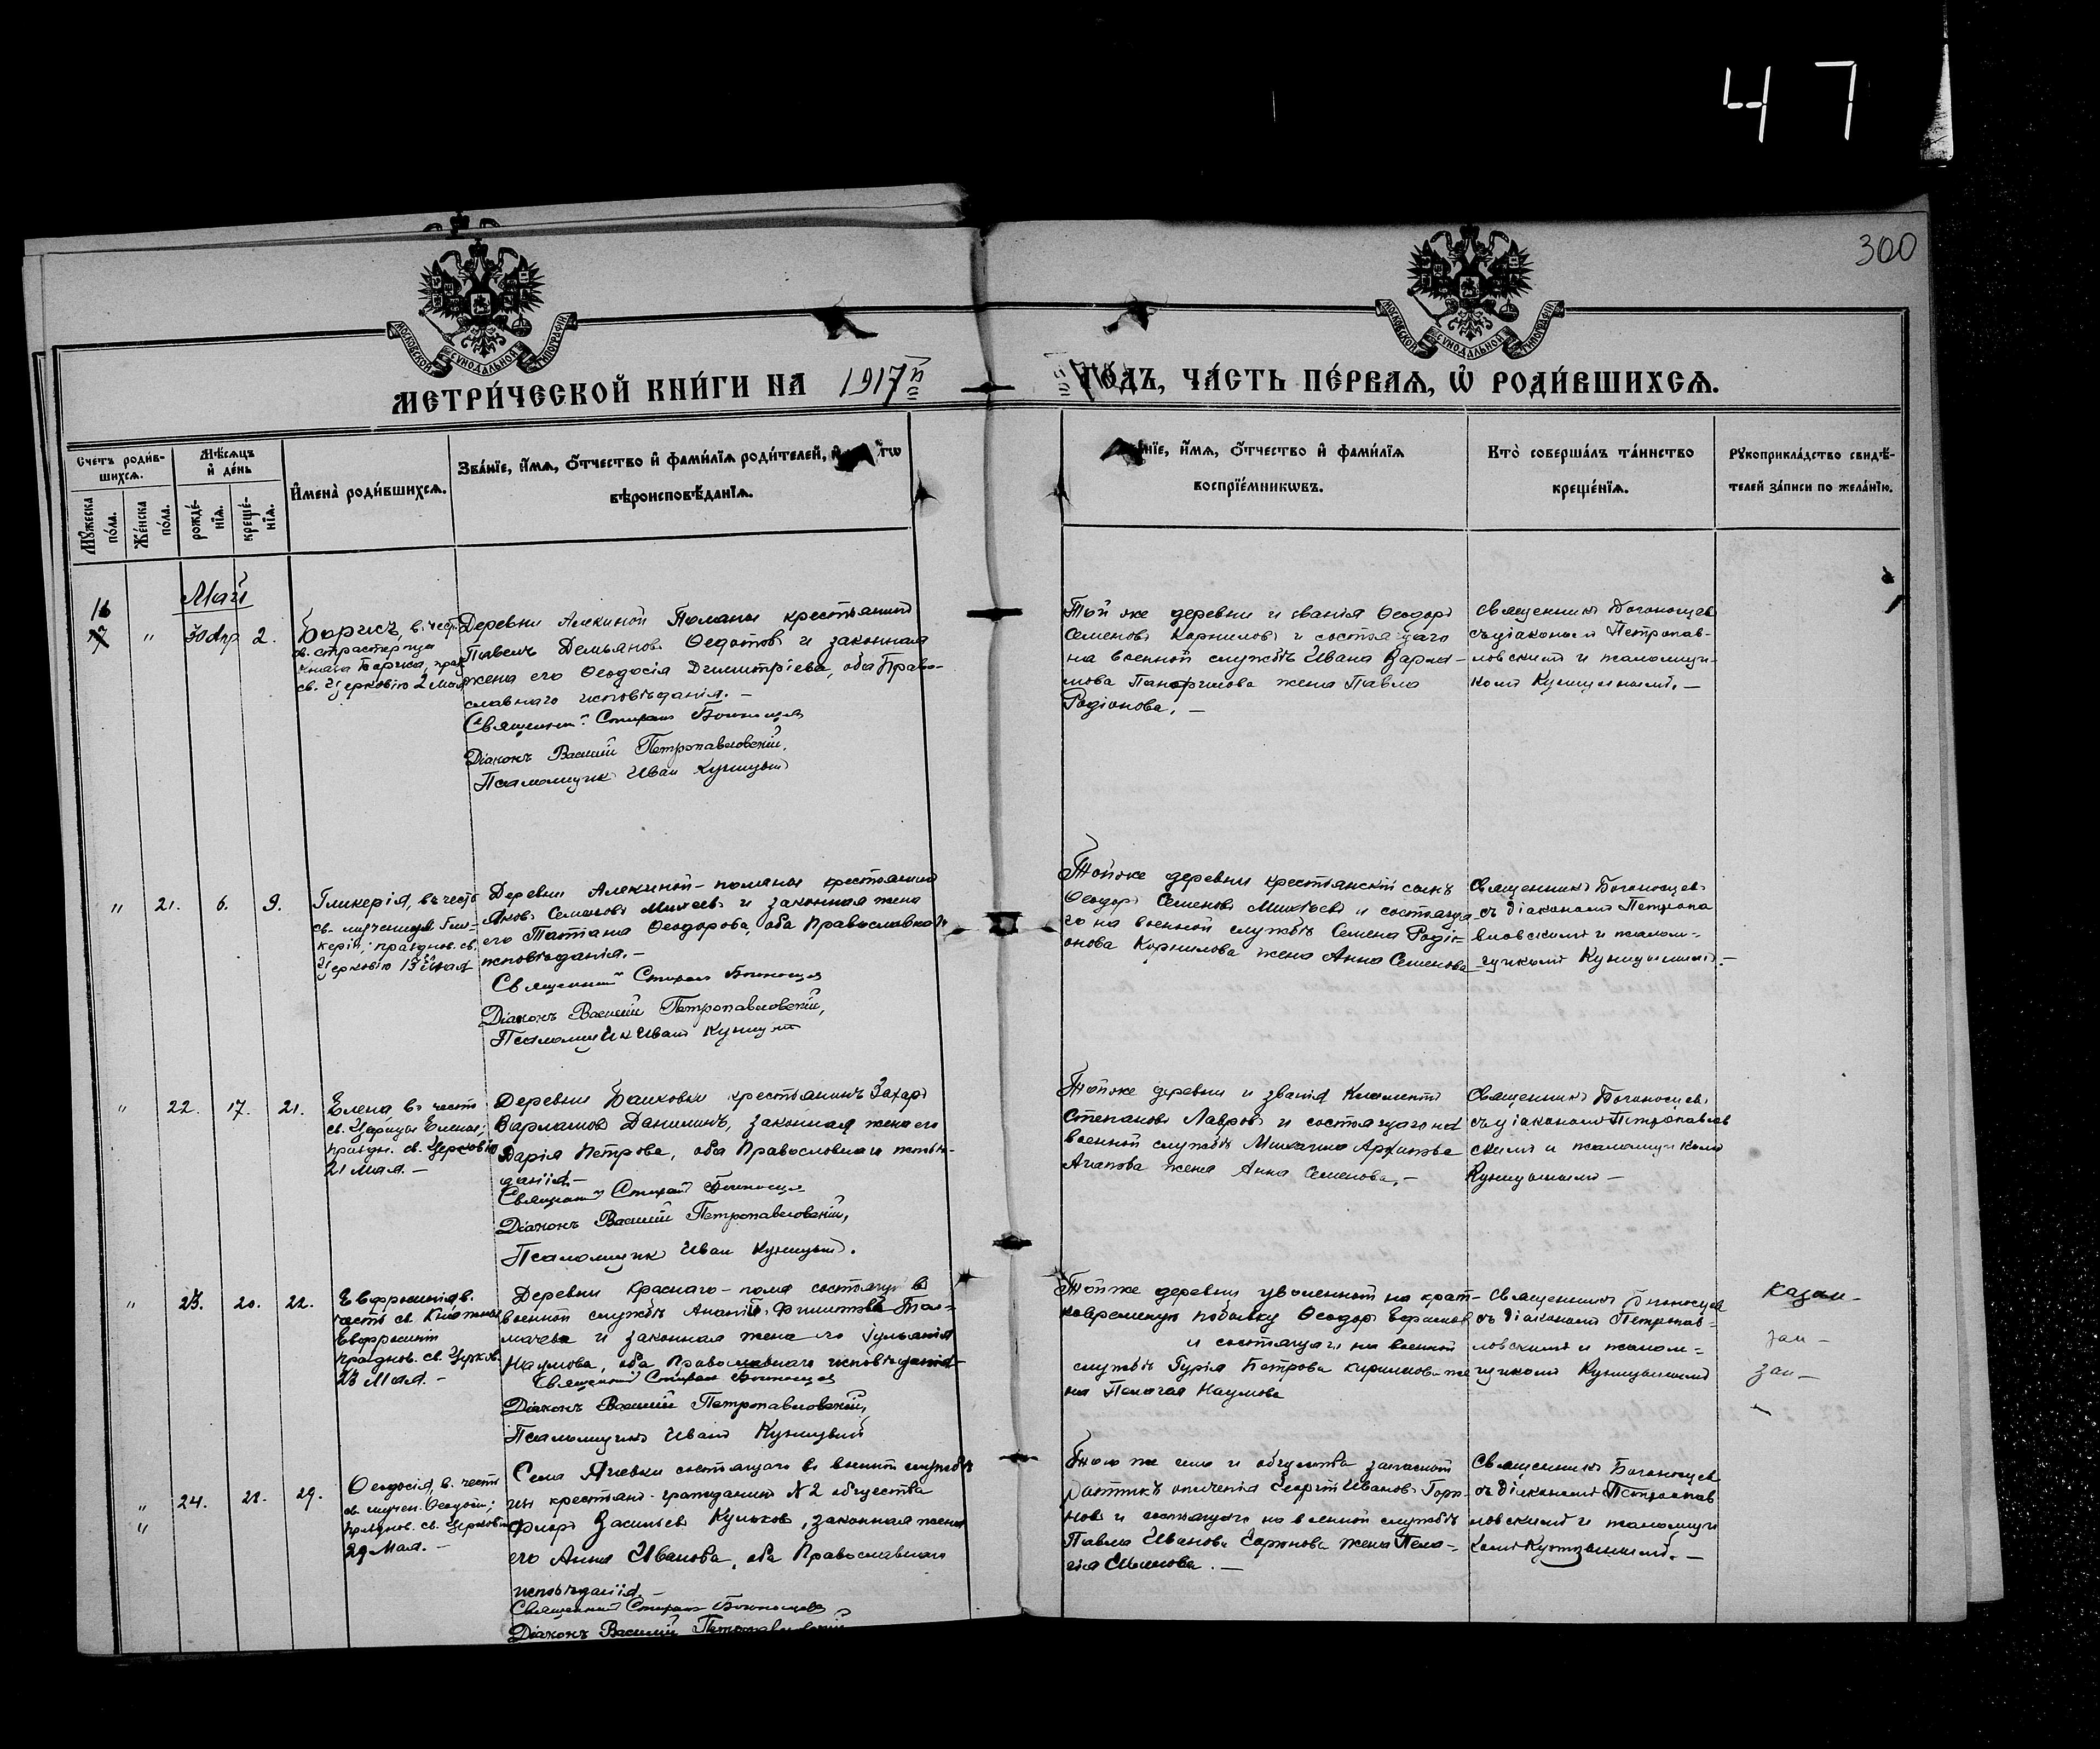 47
300
МОСКОВСКОЙ СУНОДАЛЬНОЙ ТИПОГРАФІИ
МОСКОВСКОЙ СУНОДАЛЬНОЙ ТИПОГРАФІИ
МЕТРИ́ЧЕСКОЙ КНИ́ГИ НА 1917й ГО́ДЪ, ЧА́СТЬ ПЕ́РВАѦ, Ѡ҆ РОДИ́ВШИХСѦ.
Сче́тъ роди́в-
шихсѧ.
Мꙋ́жеска по́ла.
Же́нска по́ла.
Мѣ́сѧцъ
и҆ де́нь
рожде́-
нїѧ.
креще́-
нїѧ.
И҆мена̀ роди́вшихсѧ.
Зва́нїе, и҆́мѧ, ѻ҆́тчество и҆ фами́лїѧ роди́телей,
вѣроисповѣ́данїѧ.
нїе, и҆́мѧ, ѻ҆́тчество и҆ фами́лїѧ
воспрїе́мникѡвъ.
Кто̀ соверша́лъ та́инство
креще́нїѧ.
Рꙋкоприкла́дство свидѣ́-
телей за́писи по жела́нїю.
Май
16
17 " 30 Апр 2.
Борисъ, въ чест
св. страстерпца
Князя Бориса, праз
св. Церковію 2 Мая
Деревни Алекиной Поляны крестьянинъ
Павелъ Демьяновъ Ѳедотовъ и законная
жена его Ѳеодосія Димитріева, оба Право-
славнаго исповѣданія. -
Священникъ Богоносцев
Діаконъ Василій Петропавловскій.
Псаломщикъ Иван Куницын
Той же деревни и званія Ѳеодоръ
Семеновъ Корниловъ и состоящаго
на военной службѣ Ивана Варла-
мова жена Павла
Родіонова. -
Священникъ Богоносцевъ
съ діакономъ Петропав-
ловскимъ и псаломщи-
комъ Куницынымъ. -
" 21. 6. 9.
Гликерія, въ честь
св. мученицы Гли-
керіи; празднов. св.
Церковію 13 Мая
Деревни Алекиной-поляны крестьянинъ
Яковъ Семеновъ Михеевъ и законная жена
его Татіана Ѳеодорова, оба Православнаго
исповѣданія. -
Священникъ Богоносцев
Діаконъ Василій Петропавловскій,
Псаломщикъ Иванъ Куницын
Той же деревни крестьянскій сынъ
Ѳеодоръ Семеновъ Михѣевъ и состояща-
го на военной службѣ Семена Родіо-
нова Корнилова жена Анна Семенова
Священникъ Богоносцевъ
съ діакономъ Петропа
вловскимъ и псалом-
щикомъ Куницынымъ. -
" 22. 17. 21.
Елена въ честь
св. Царицы Елены;
праздн. св. Церковію
21 Мая. -
Деревни Башковки крестьянинъ Захаръ
Варламовъ Данилинъ, законная жена его
Дарія Петрова, оба Православнаго исповѣ-
данія. -
Священникъ Богоносцев
Діаконъ Василій Петропавловскій,
Псаломщикъ Иван Куницын.
Той же деревни и званія Климентъ
Степановъ Лавровъ и состоящаго на
военной службѣ Архипова
Агапова жена Анна Семенова. -
Священникъ Богоносцевъ
съ діакономъ Петропавлов
скимъ и псаломщикомъ
Куницынымъ -
" 23. 20. 22.
Евфросинія въ
честь св. Княжны
Евфросиніи
празднов. св. Церков.
23 Мая. -
Деревни Краснаго-поля состоящ в
военной службѣ Ананій Филиповъ Тол-
мачева и законная жена его Іульянія
Наумова, оба Православнаго исповѣданія
Священникъ Богоносцев
Діаконъ Василій Петропавловскій,
Псаломщикъ Иванъ Куницынъ
Той же деревни уволенный на крат-
ковременную побывку Ѳеодоръ
и состоящаго на военной
службѣ Гурія Петрова Кирилова же
на Пелагея Наумова
Священникъ Богоносцев
съ діакономъ Петропав-
ловскимъ и псалом-
щикомъ Куницынымъ
"
" 24. 28. 29.
Ѳеодосія, въ честь
св. мучен. Ѳеодосіи;
празднов. св. Церковію
29 Мая. -
Села состоящаго въ военной службѣ
изъ крестьянъ-гражданинъ №2 общества
Флоръ Васильевъ Кульковъ, законная жена
его Анна Иванова, оба Православнаго
исповѣданія. -
Священникъ Богоносцев
Діаконъ Василій Петропавловскій
Того же села и общества запасной
ратникъ ополченія Георгій Ивановъ
и состоящаго на военной службѣ
Павла Иванова жена Пела-
гія Иванова. -
Священникъ Богоносцев
съ діакономъ Петропав
ловскимъ и псаломщи
комъ Куницынымъ. -